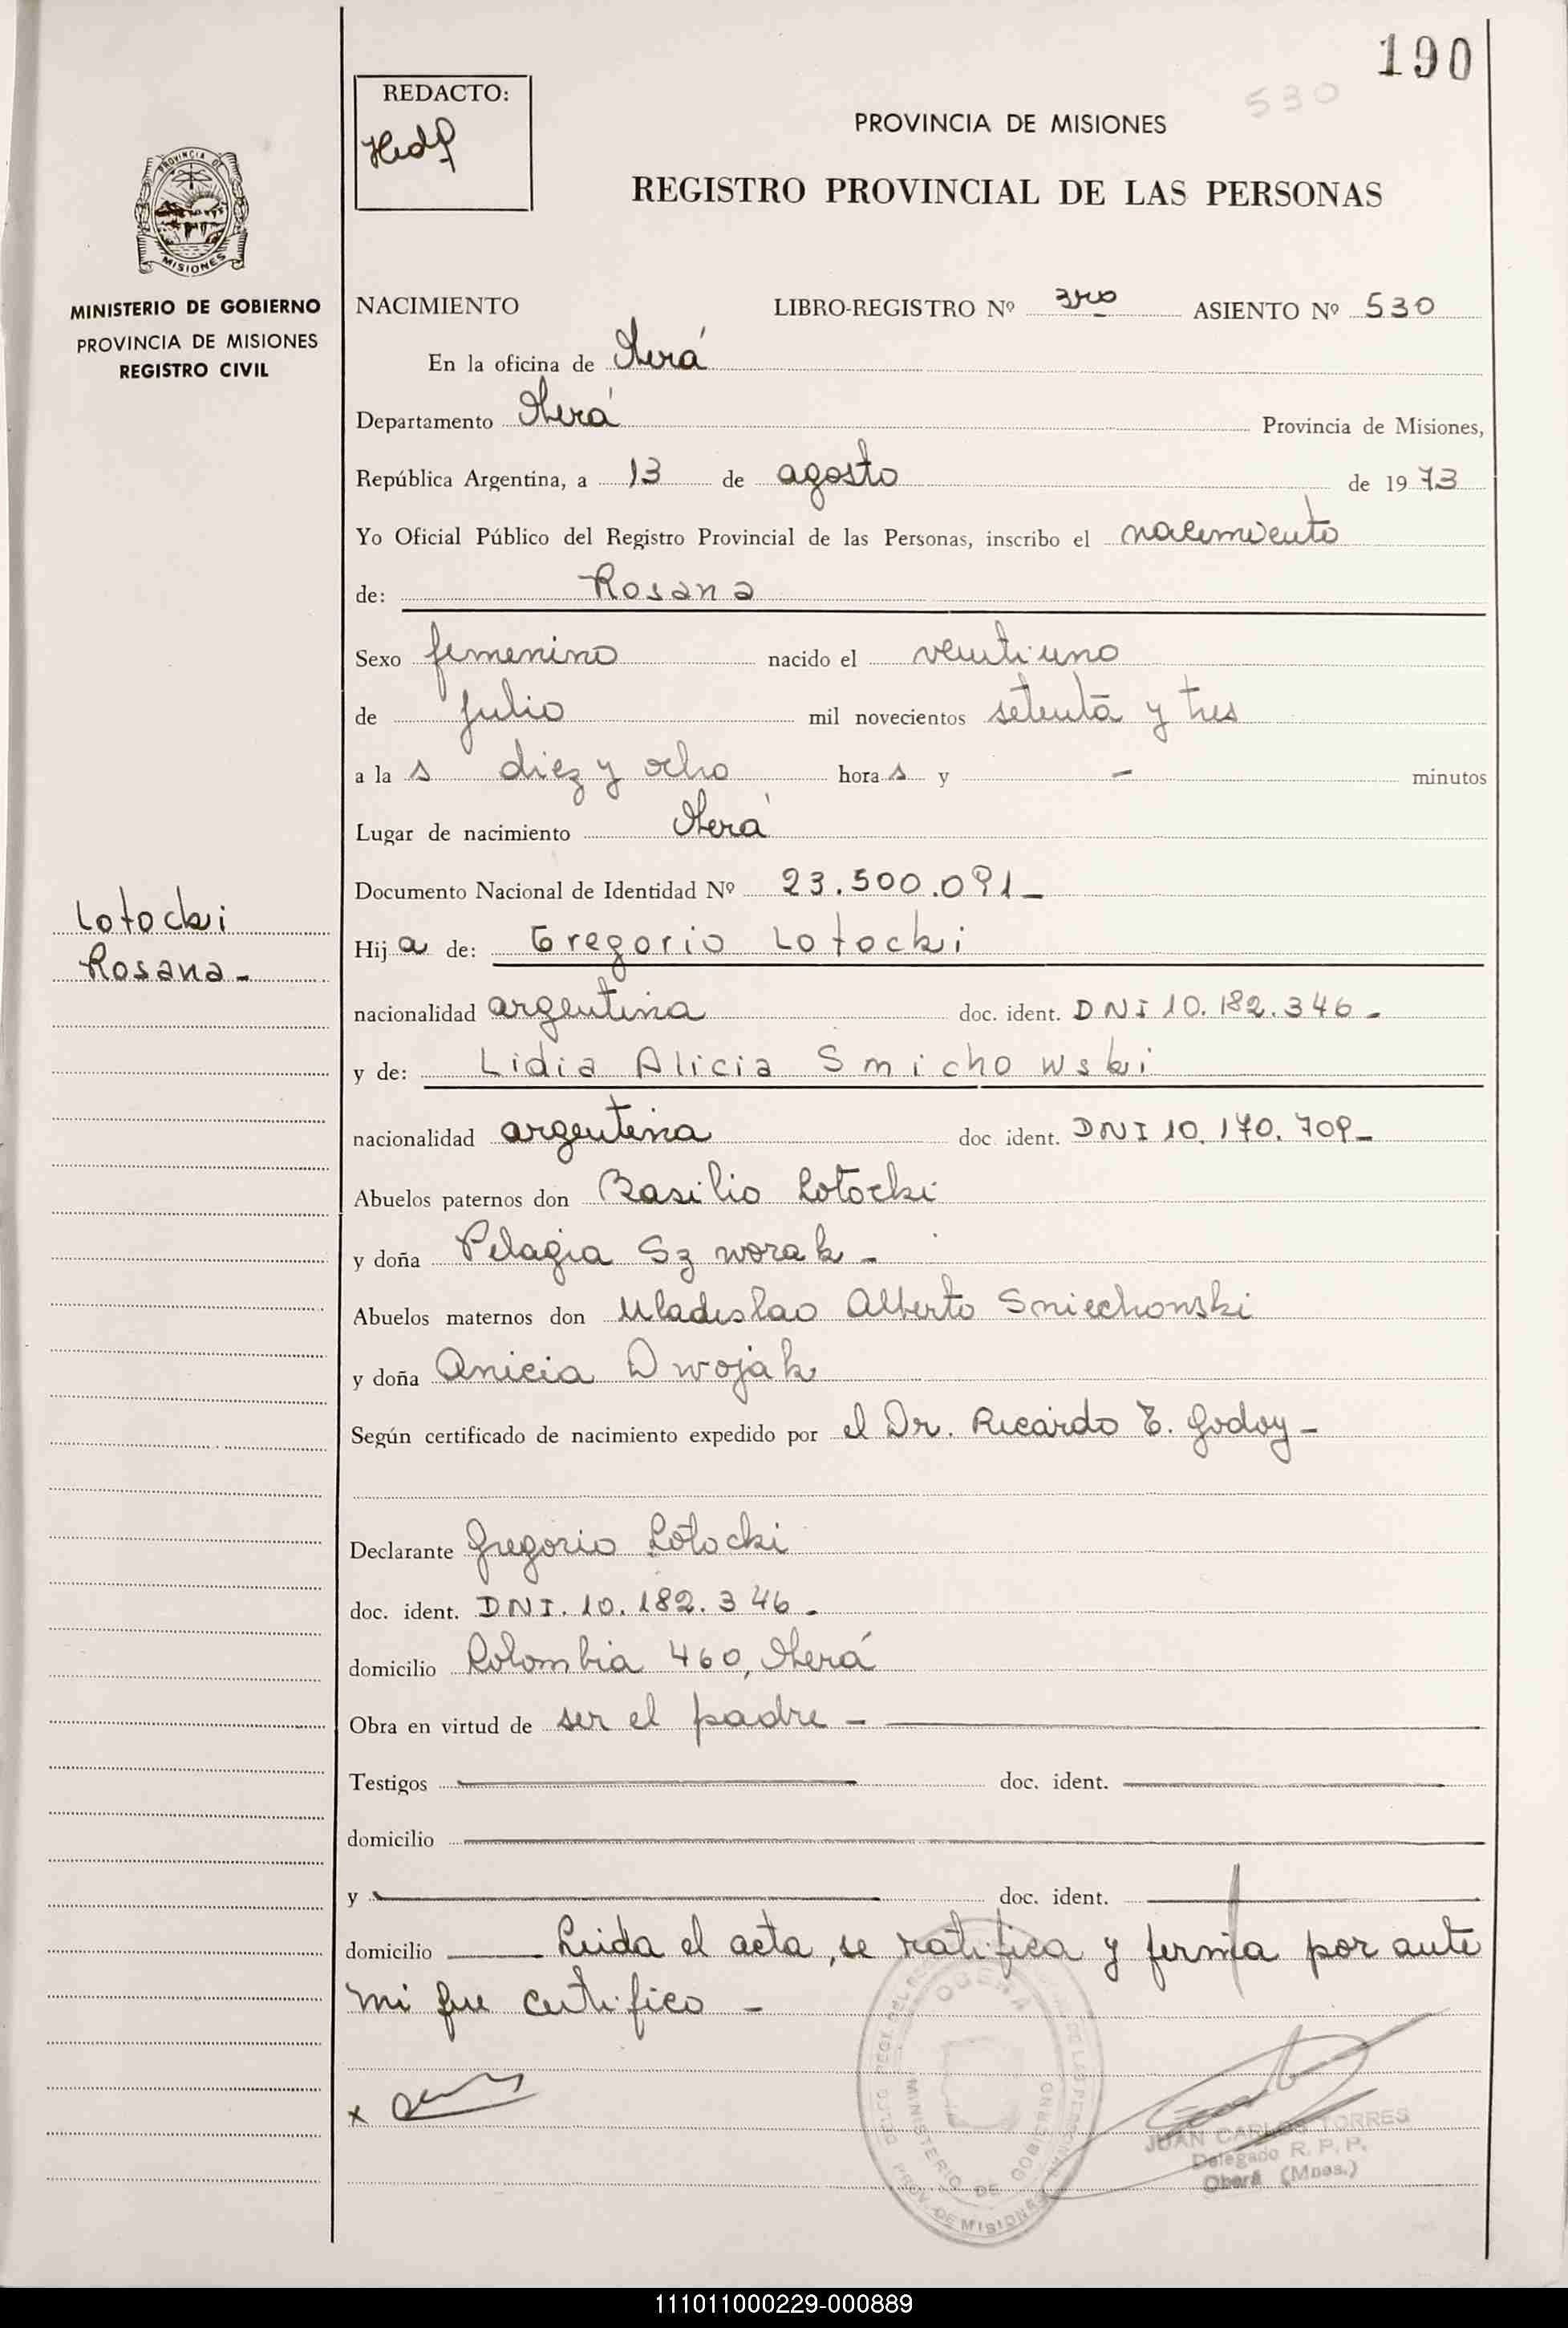 190
530
REDACTO:
PROVINCIA DE MISIONES
REGISTRO PROVINCIAL DE LAS PERSONAS
PROVINCIA DE
MISIONES
MINISTERIO DE GOBIERNO
PROVINCIA DE MISIONES
REGISTRO CIVIL
NACIMIENTO LIBRO-REGISTRO Nº 3ro ASIENTO Nº 530
En la oficina de Oberá
Departamento Oberá Provincia de Misiones,
República Argentina, a 13 de agosto de 1973
Yo Oficial Público del Registro Provincial de las Personas, inscribo el nacimiento
de: Rosana
Sexo femenino nacido el veintiuno
de julio mil novecientos setenta y tres
a la s diez y ocho hora s y - minutos
Lugar de nacimiento Oberá
Documento Nacional de Identidad Nº 23.500.091-
Lotocki
Rosana-
Hij a de: Gregorio Lotocki
nacionalidad argentina doc. ident. DNI 10.182.346-
y de: Lidia Alicia Smichowski
nacionalidad argentina doc. ident. DNI 10.170.709-
Abuelos paternos don Basilio Lotocki
y doña Pelagia Szworak-
Abuelos maternos don Uladislao Alberto Smiechowski
y doña Anicia Dwojak
Según certificado de nacimiento expedido por el Dr. Ricardo E. Godoy-
Declarante Gregorio Lotocki
doc. ident. DNI. 10.182.346-
domicilio Colombia 460, Oberá
Obra en virtud de ser el padre-
Testigos doc. ident.
domicilio
y doc. ident.
domicilio Leida el acta, se ratifica y firma por ante
mi que certifico-
OBERA
MINISTERIO DE GOBIERNO
PROV. DE MISIONES
x
JUAN CARLOS TORRES
Delegado R. P. P.
Oberá (Mnes.)
111011000229-000889